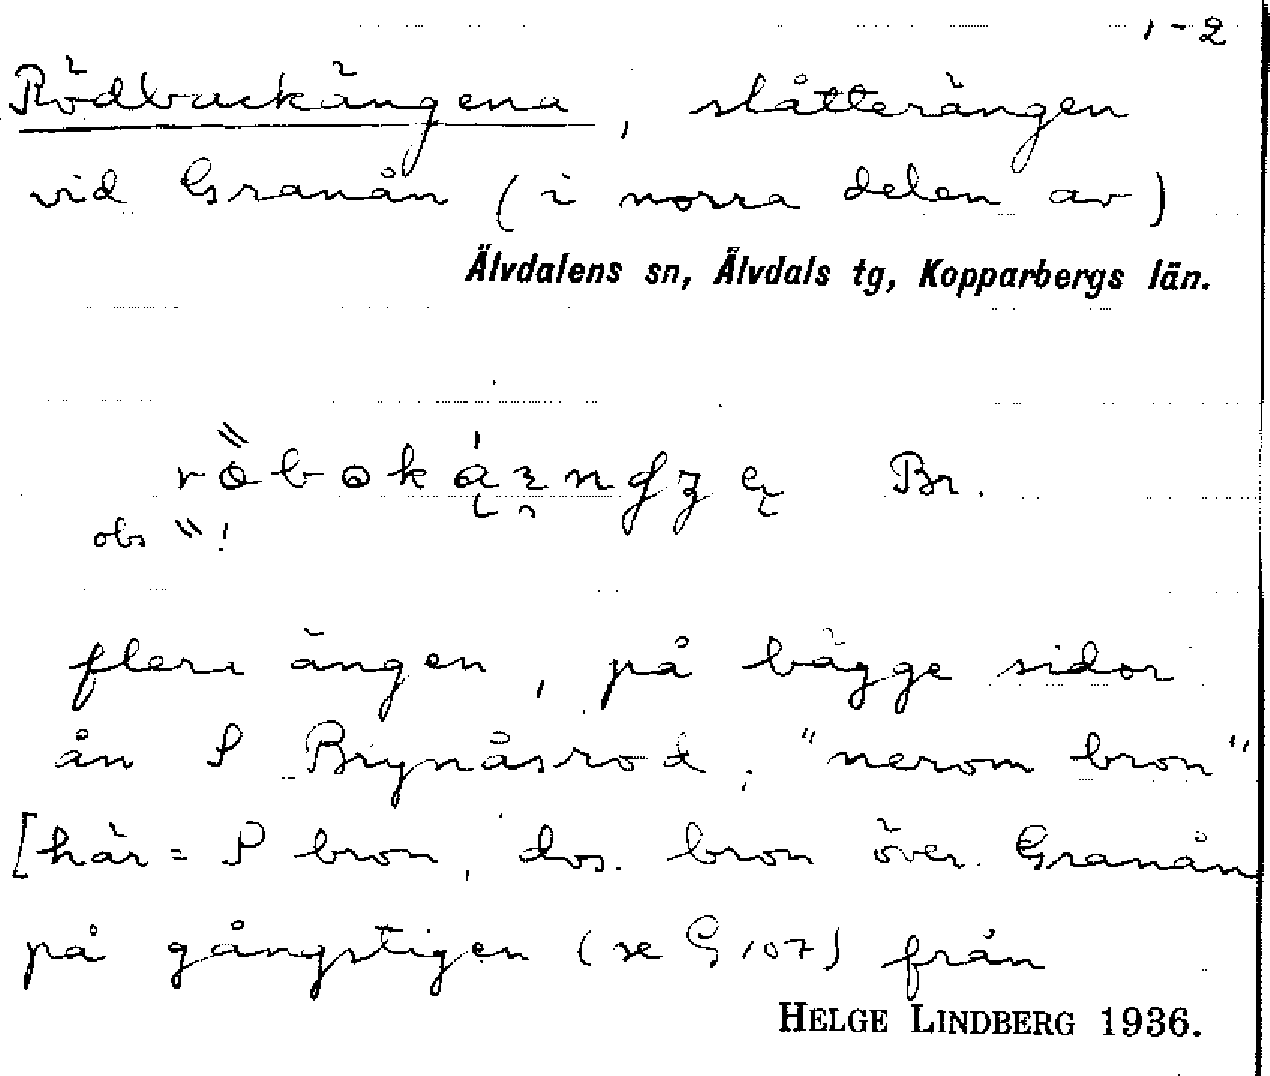 1-2
Rödbackängena, slåtterängen
vid Granån (i norra delen av)
Älvdalens sn, Älvdals tg, Kopparbergs län.
Br.
obs \\!
flera ängen, på bägge sidor
ån S Brynåsrod, "nerom bron"
[här = S bron, dvs. bron över Granån
på gångstigen (se G 107) från
HELGE LINDBERG 1936.